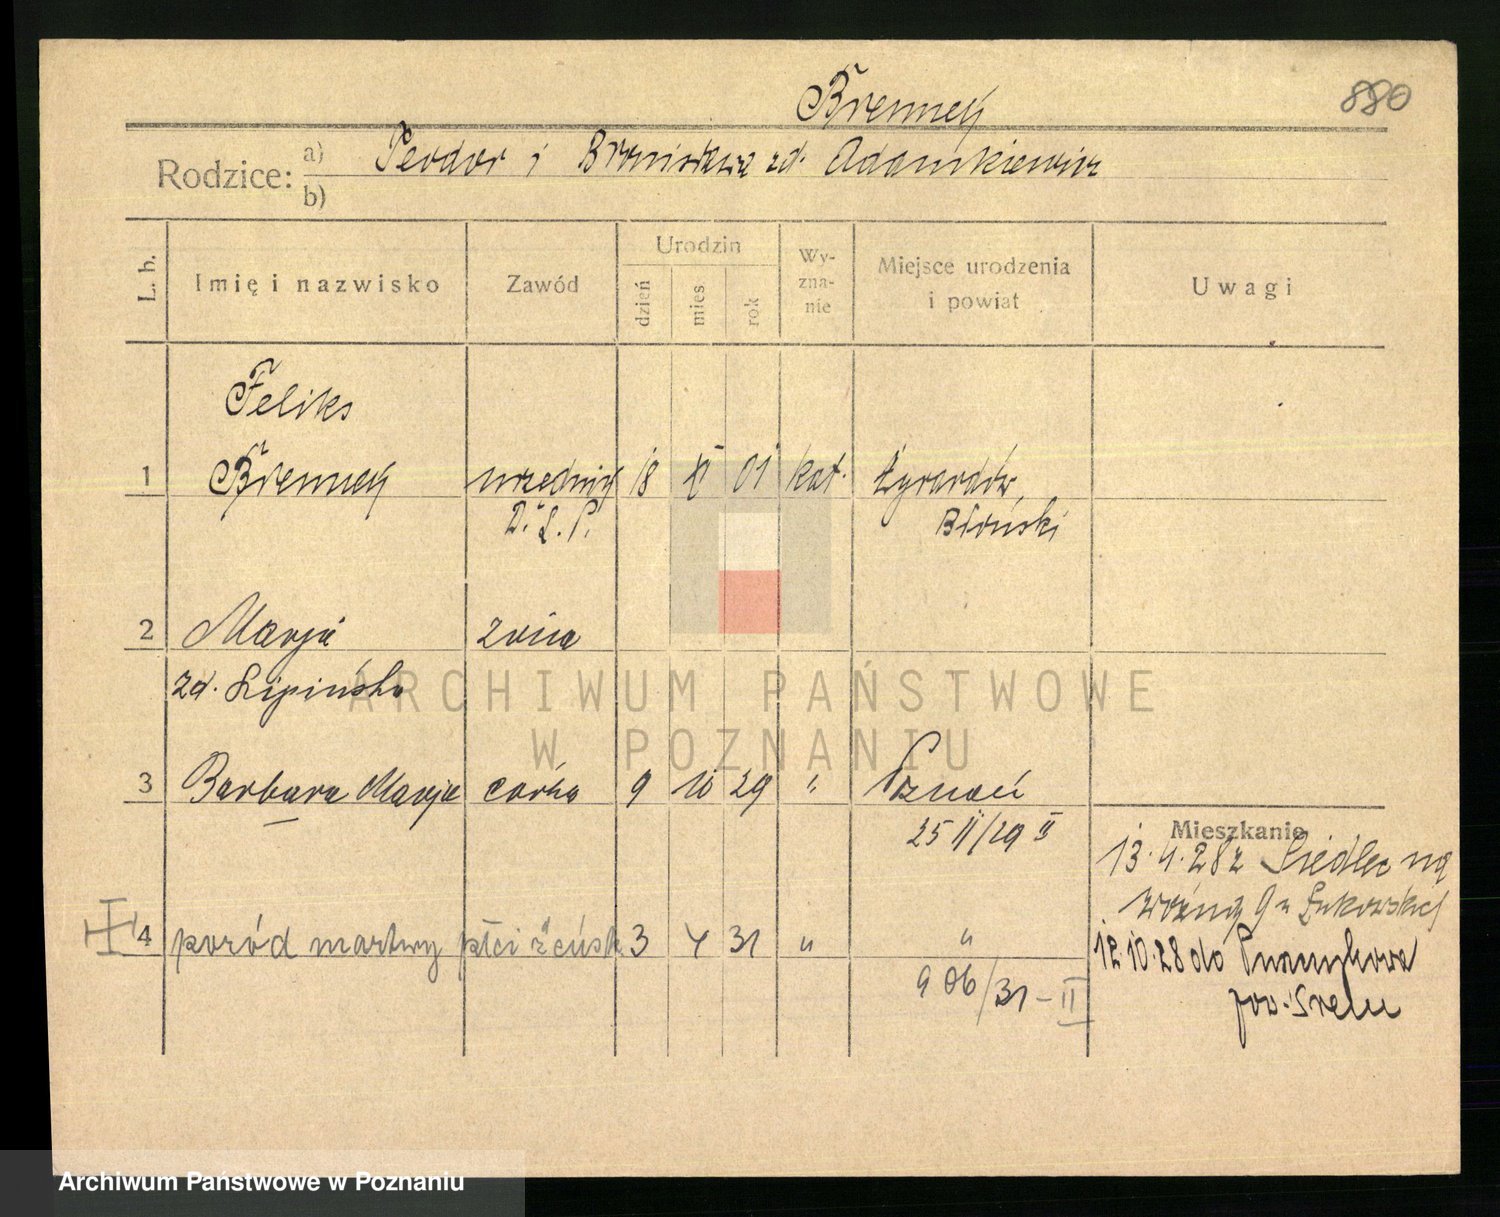 Brenneÿ
880
Rodzice: a) Teodor i Bronisława zd. Adamkiewicz
b)
L. b.
Imię i nazwisko
Zawód
Urodzin
dzień
mies
rok
Wy-
zna-
nie
Miejsce urodzenia
i powiat
Uwagi
Feliks
1 Brenneÿ urzędnik 18 XI 01 kat. Żyrardów
D. L. P. Błoński
2 Marja żona
zd. Lipińska
3 Barbara Marja córka 9 10 29 " Poznań
25 II/29 II
4 poród martwy płci żeńsk. 3 4 31 " "
906/31 - II
Mieszkanie
13.4.28 z Siedlec na
12.10.28 do
pow. Śrem
ARCHIWUM PAŃSTWOWE
W POZNANIU
Archiwum Państwowe w Poznaniu